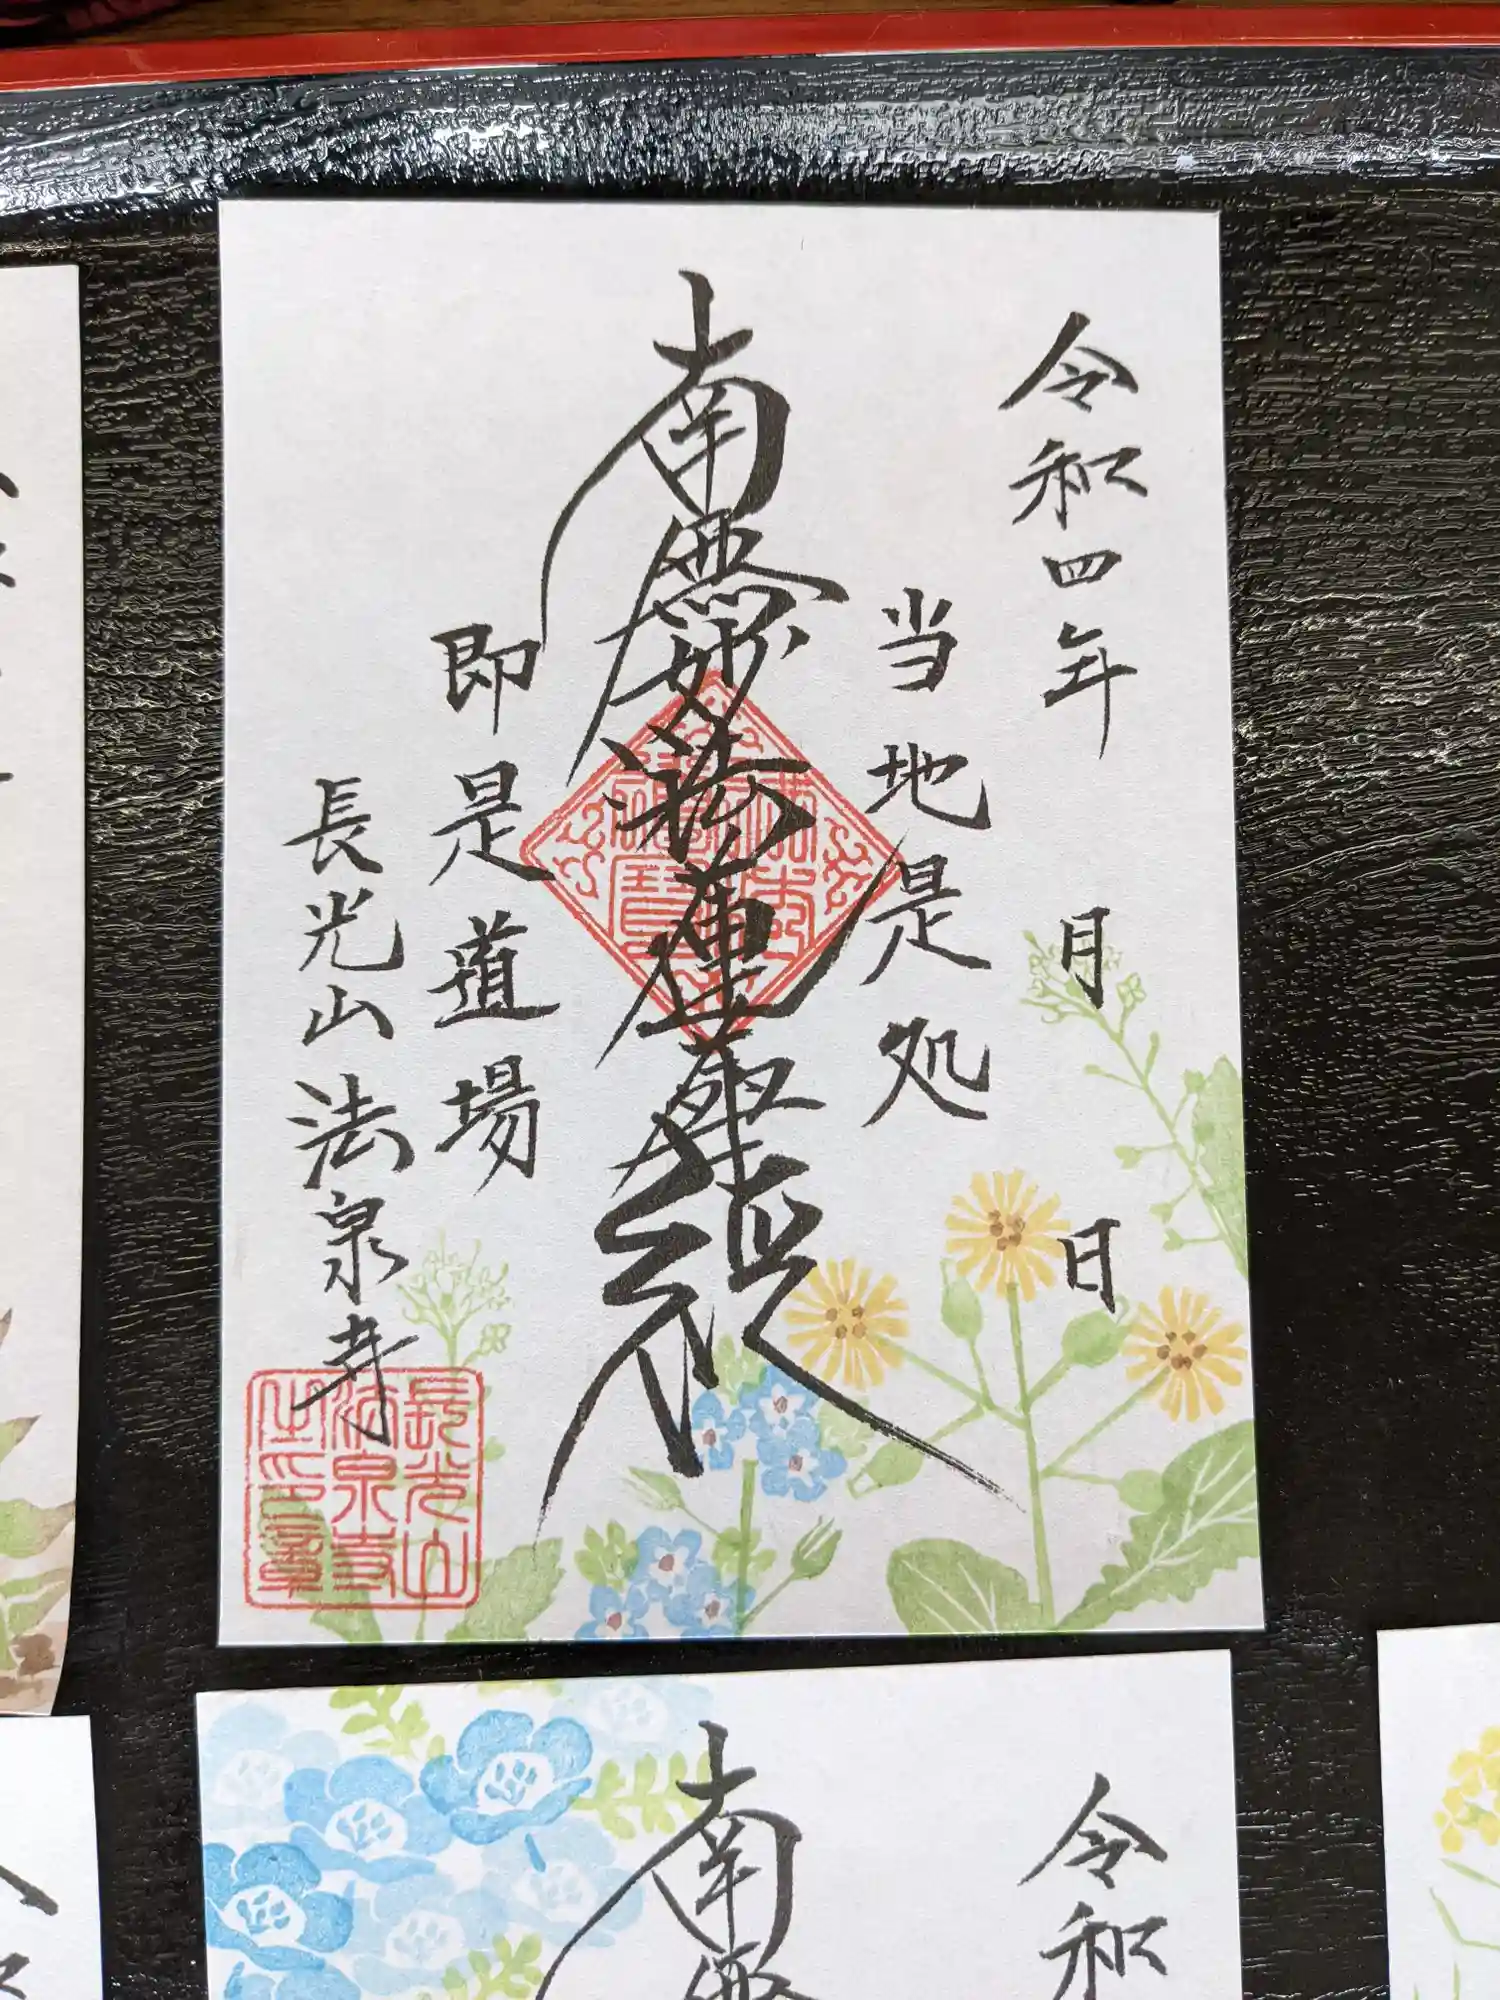 令和四年 月 日
当地是処
南無妙法蓮華経
即是道場
長光山法泉寺
長光山
法泉寺
之印章
令和
南無